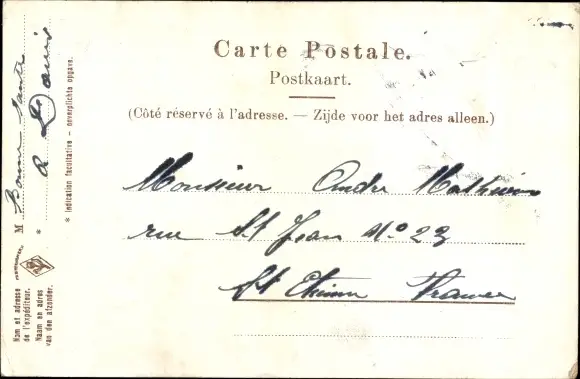 Carte Postale.
Postkaart.
(Côté réservé à l'adresse. — Zijde voor het adres alleen.)
Monsieur Andre Mathieu
rue St Jean No 23
St Etienne France
M Bonne Sante
* a Louis
* Indication facultative – onverplichte opgave.
Nom et adresse
de l'expéditeur.
Naam en adres
van den afzender.